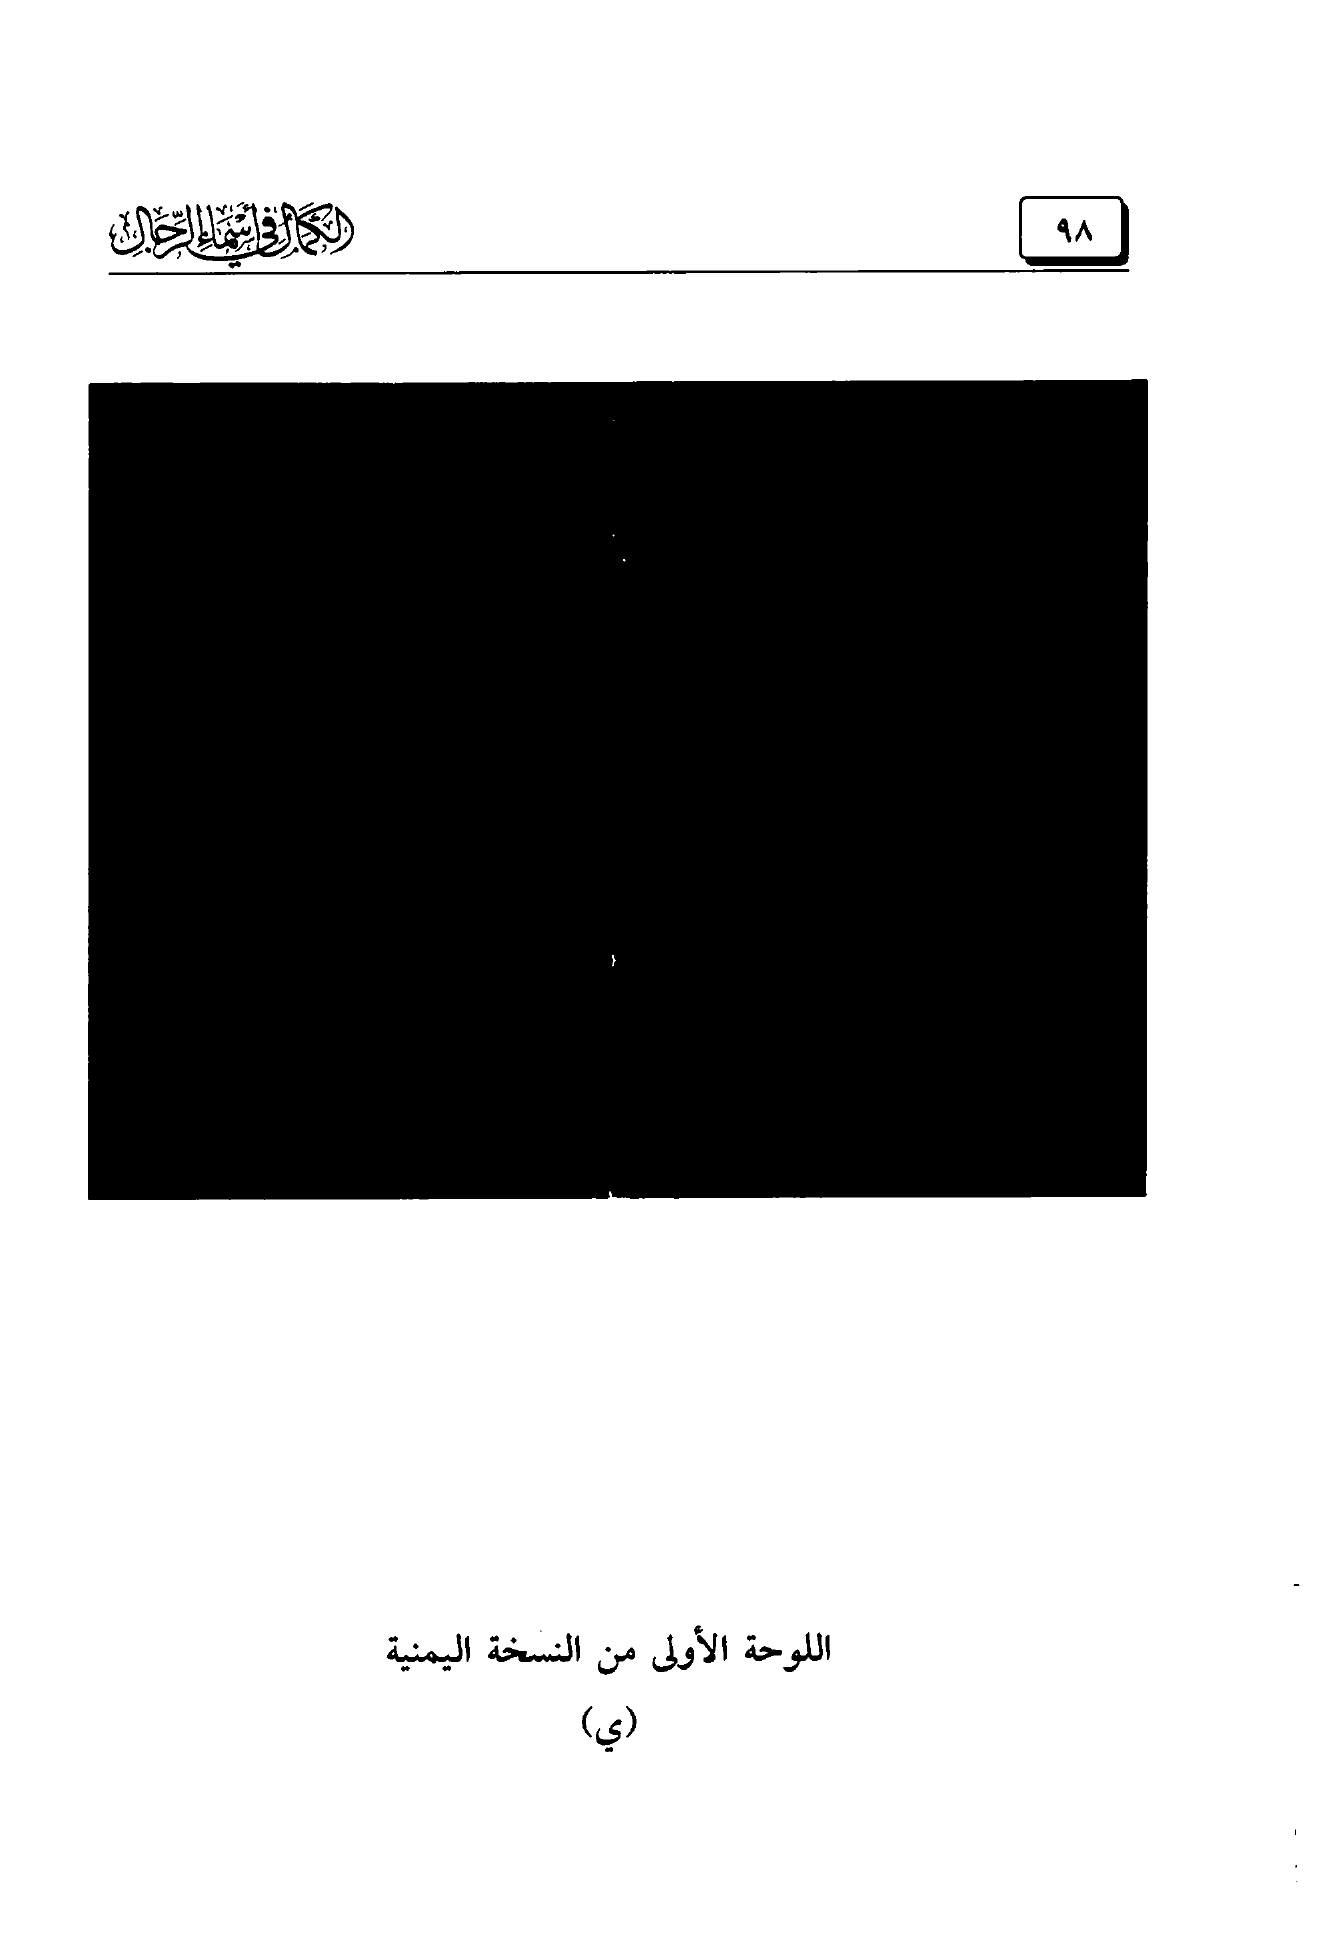 ٩٨
الكمال في أسماء الرجال
اللوحة الأولى من النسخة اليمنية
(ي)